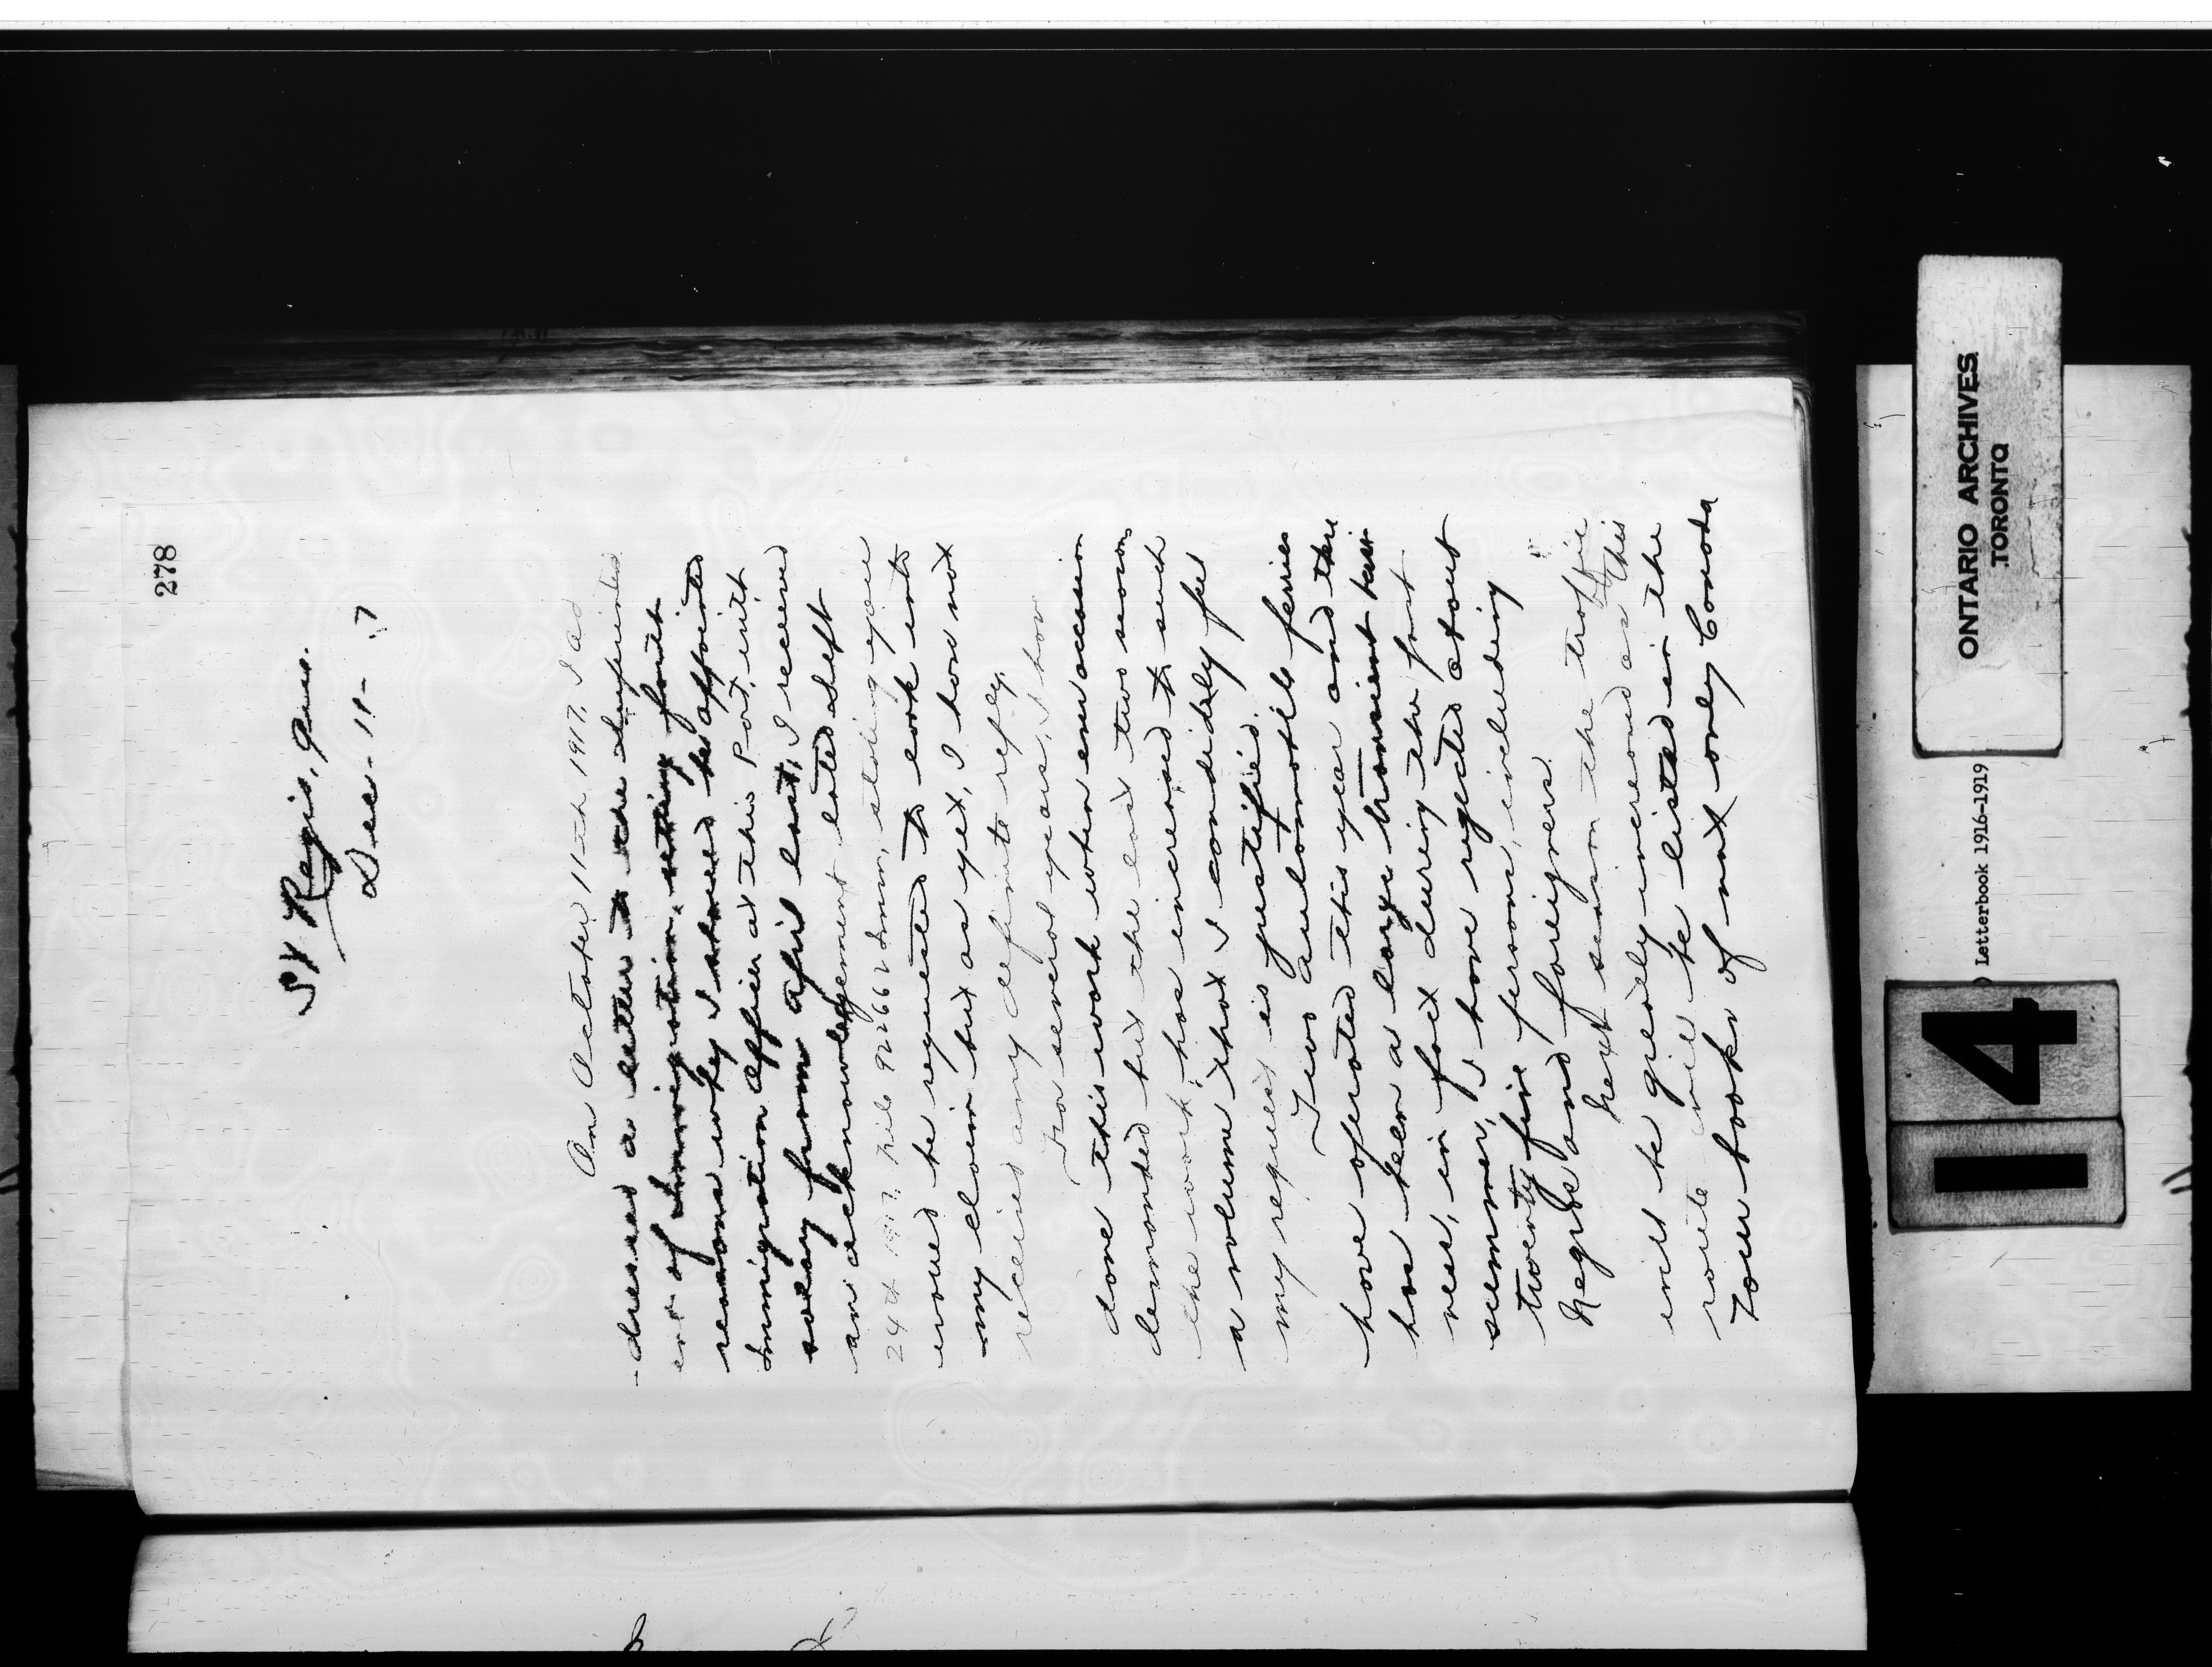 278
St Regis, Que.
Dec. 11- 17
On October 11th 1917, I ad
-dressed a letter to the Superintend
ent of Immigration, setting forth
reasons why I should be appointed
Immigration Officer at this Port, with
salary from April last, I received
an acknowledgement dated Sept
24th 1917, File 922662 Imm, stating you
would be requested to look into
my claim but as yet, I have not
received any definite reply.
For several years, I have
done this work when an occasion
demanded but the last two seasons
the work, has increased to such
a volume that I candidly feel
my request is justified.
Two automobile ferries
have operated this year and there
has been a large transient busi-
ness, in fact during the past
summer, I have rejected about
twenty five persons, including
Negros and foreigners.
Next season the traffic
will be greatly increased as this
route will be listed in the
Tour books of not only Canada
ONTARIO ARCHIVES
TORONTO
Letterbook 1916-1919
14